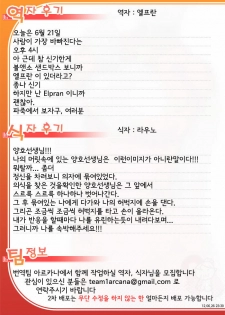 역자 후기
역자 : 엘프란
오늘은 6월 21일
사람이 가장 바빠진다는
오후 4시
아 근데 참 신기한게
블앤소 샌드박스 보니까
엘프란이 있더라고?
존나 신기
하지만 난 Elpran 이니까
괜찮아.
파죽에서 보자구, 여러분
식자 후기
식자 : 라우노
양호선생님!!!
나의 머릿속에 있는 양호선생님은 이런이미지가 아니란말이다!!!
뭐랄까... 좀더
정신을 차려보니 의자에 묶여있었다.
의식을 찾은것을확인한 양호선생님은 그 앞에서
스르륵 스르륵 하나하나 벗어가기 시작하는데..
그 후 묶여있는 나에게 다가와 나의 허벅지에 손을 댄다.
그리곤 조금씩 조금씩 허벅지를 타고 손이 올라온다.
내가 반응을 할때마다 나를 원하는듯이 내려다보며...
그러니까 나를 속박해주세요!!
팀 정보
번역팀 아르카나에서 함께 작업하실 역자, 식자님을 모집합니다
관심이 있으신 분들은 team1arcana@gmail.com 로
연락주시기 바랍니다
2차 배포는 무단 수정을 하지 않는 한 얼마든지 배포 가능합니다